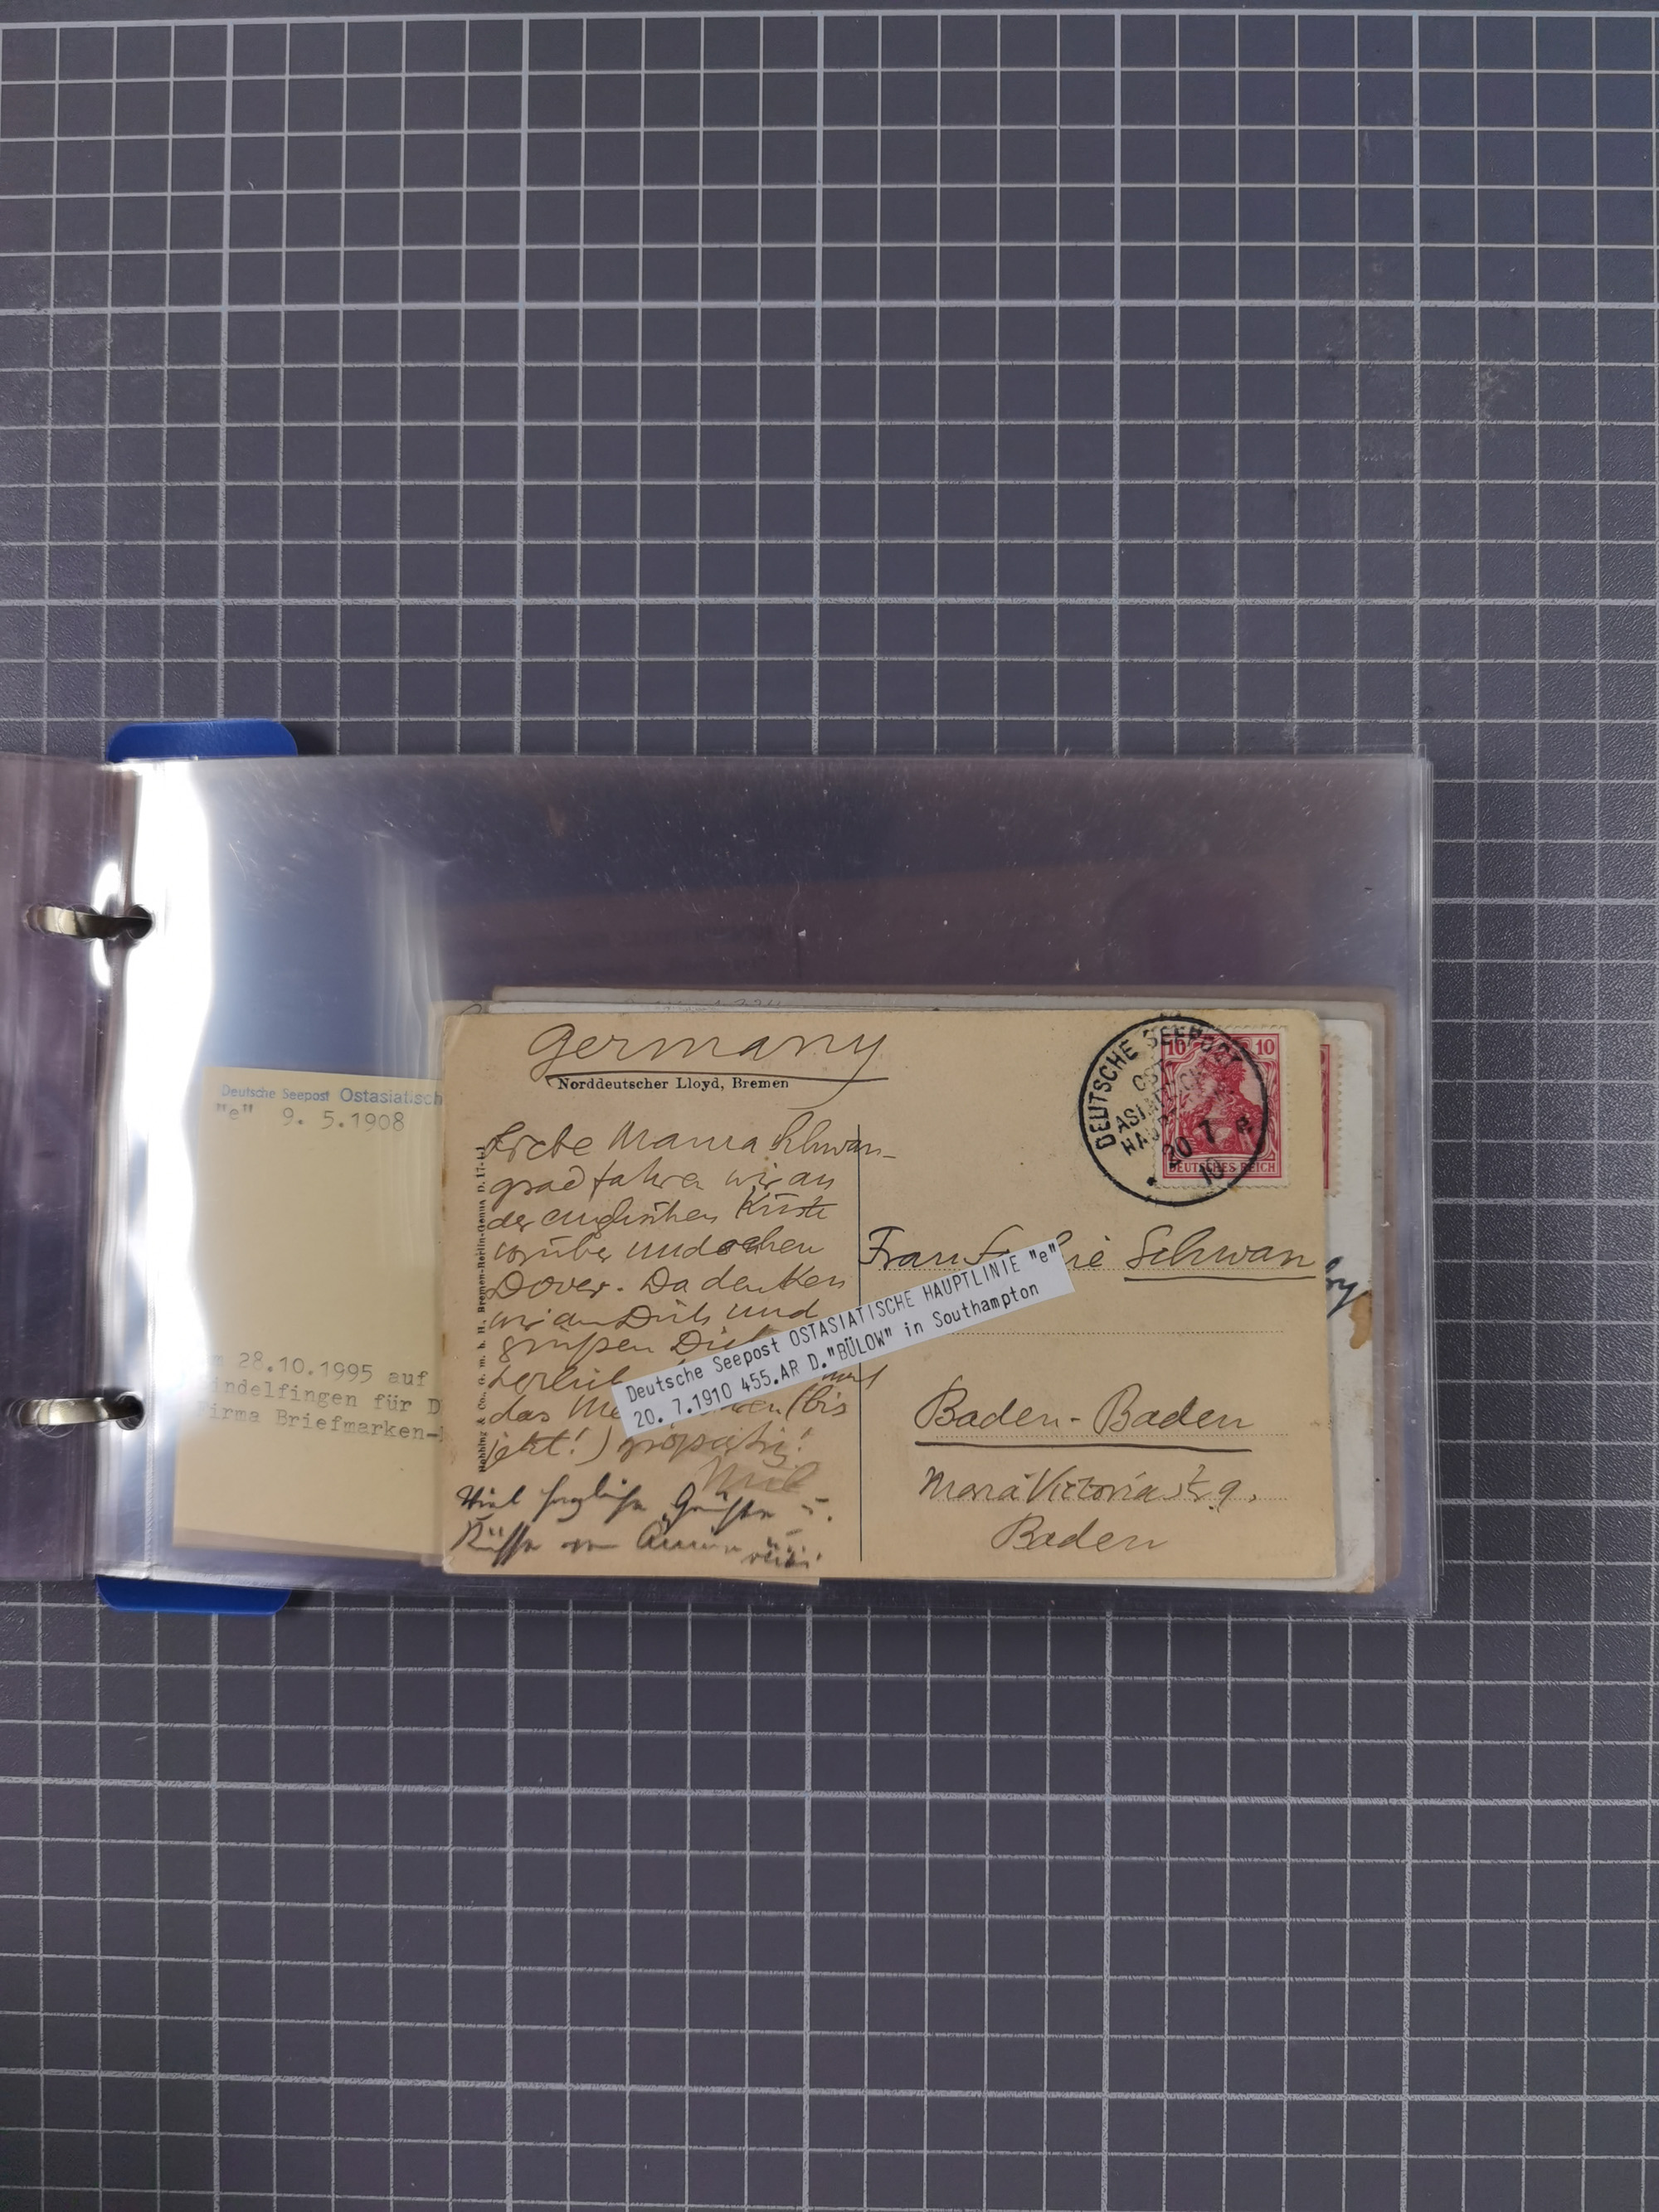 Deutsche Seepost Ostasiatisch
"e" 9. 5.1908
28.10.1995 auf
indelfingen für D
irma Briefmarken-
Germany
Norddeutscher Lloyd, Bremen
Liebe Mama Schwan
grad fahren wir an
der englischen Küste
vorüber und sehen
Dover. Da denken
wir an Dich und
grüßen Dich
das (bis
jetzt!) großartig!
Viel herzliche Grüße u.
Küsse von
DEUTSCHE SEEPOST
OST
ASIATISCHE
HAUPT
20 7 e
10
10 10
DEUTSCHES REICH
Frau Schwan
Deutsche Seepost OSTASIATISCHE HAUPTLINIE "e"
20. 7.1910 455.AR D."BÜLOW" in Southampton
Baden-Baden
Maria Victoria str 9.
Baden